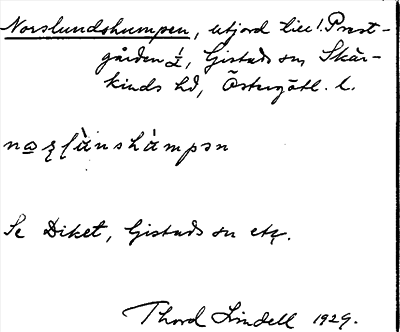 Norslundshumpen, utjord till Prest-
gården 1/2, Gistads sn, Skär-
kinds hd, Östergötl. l.
Se Diket, Gistads sn etc.
Thord Lindell 1929.